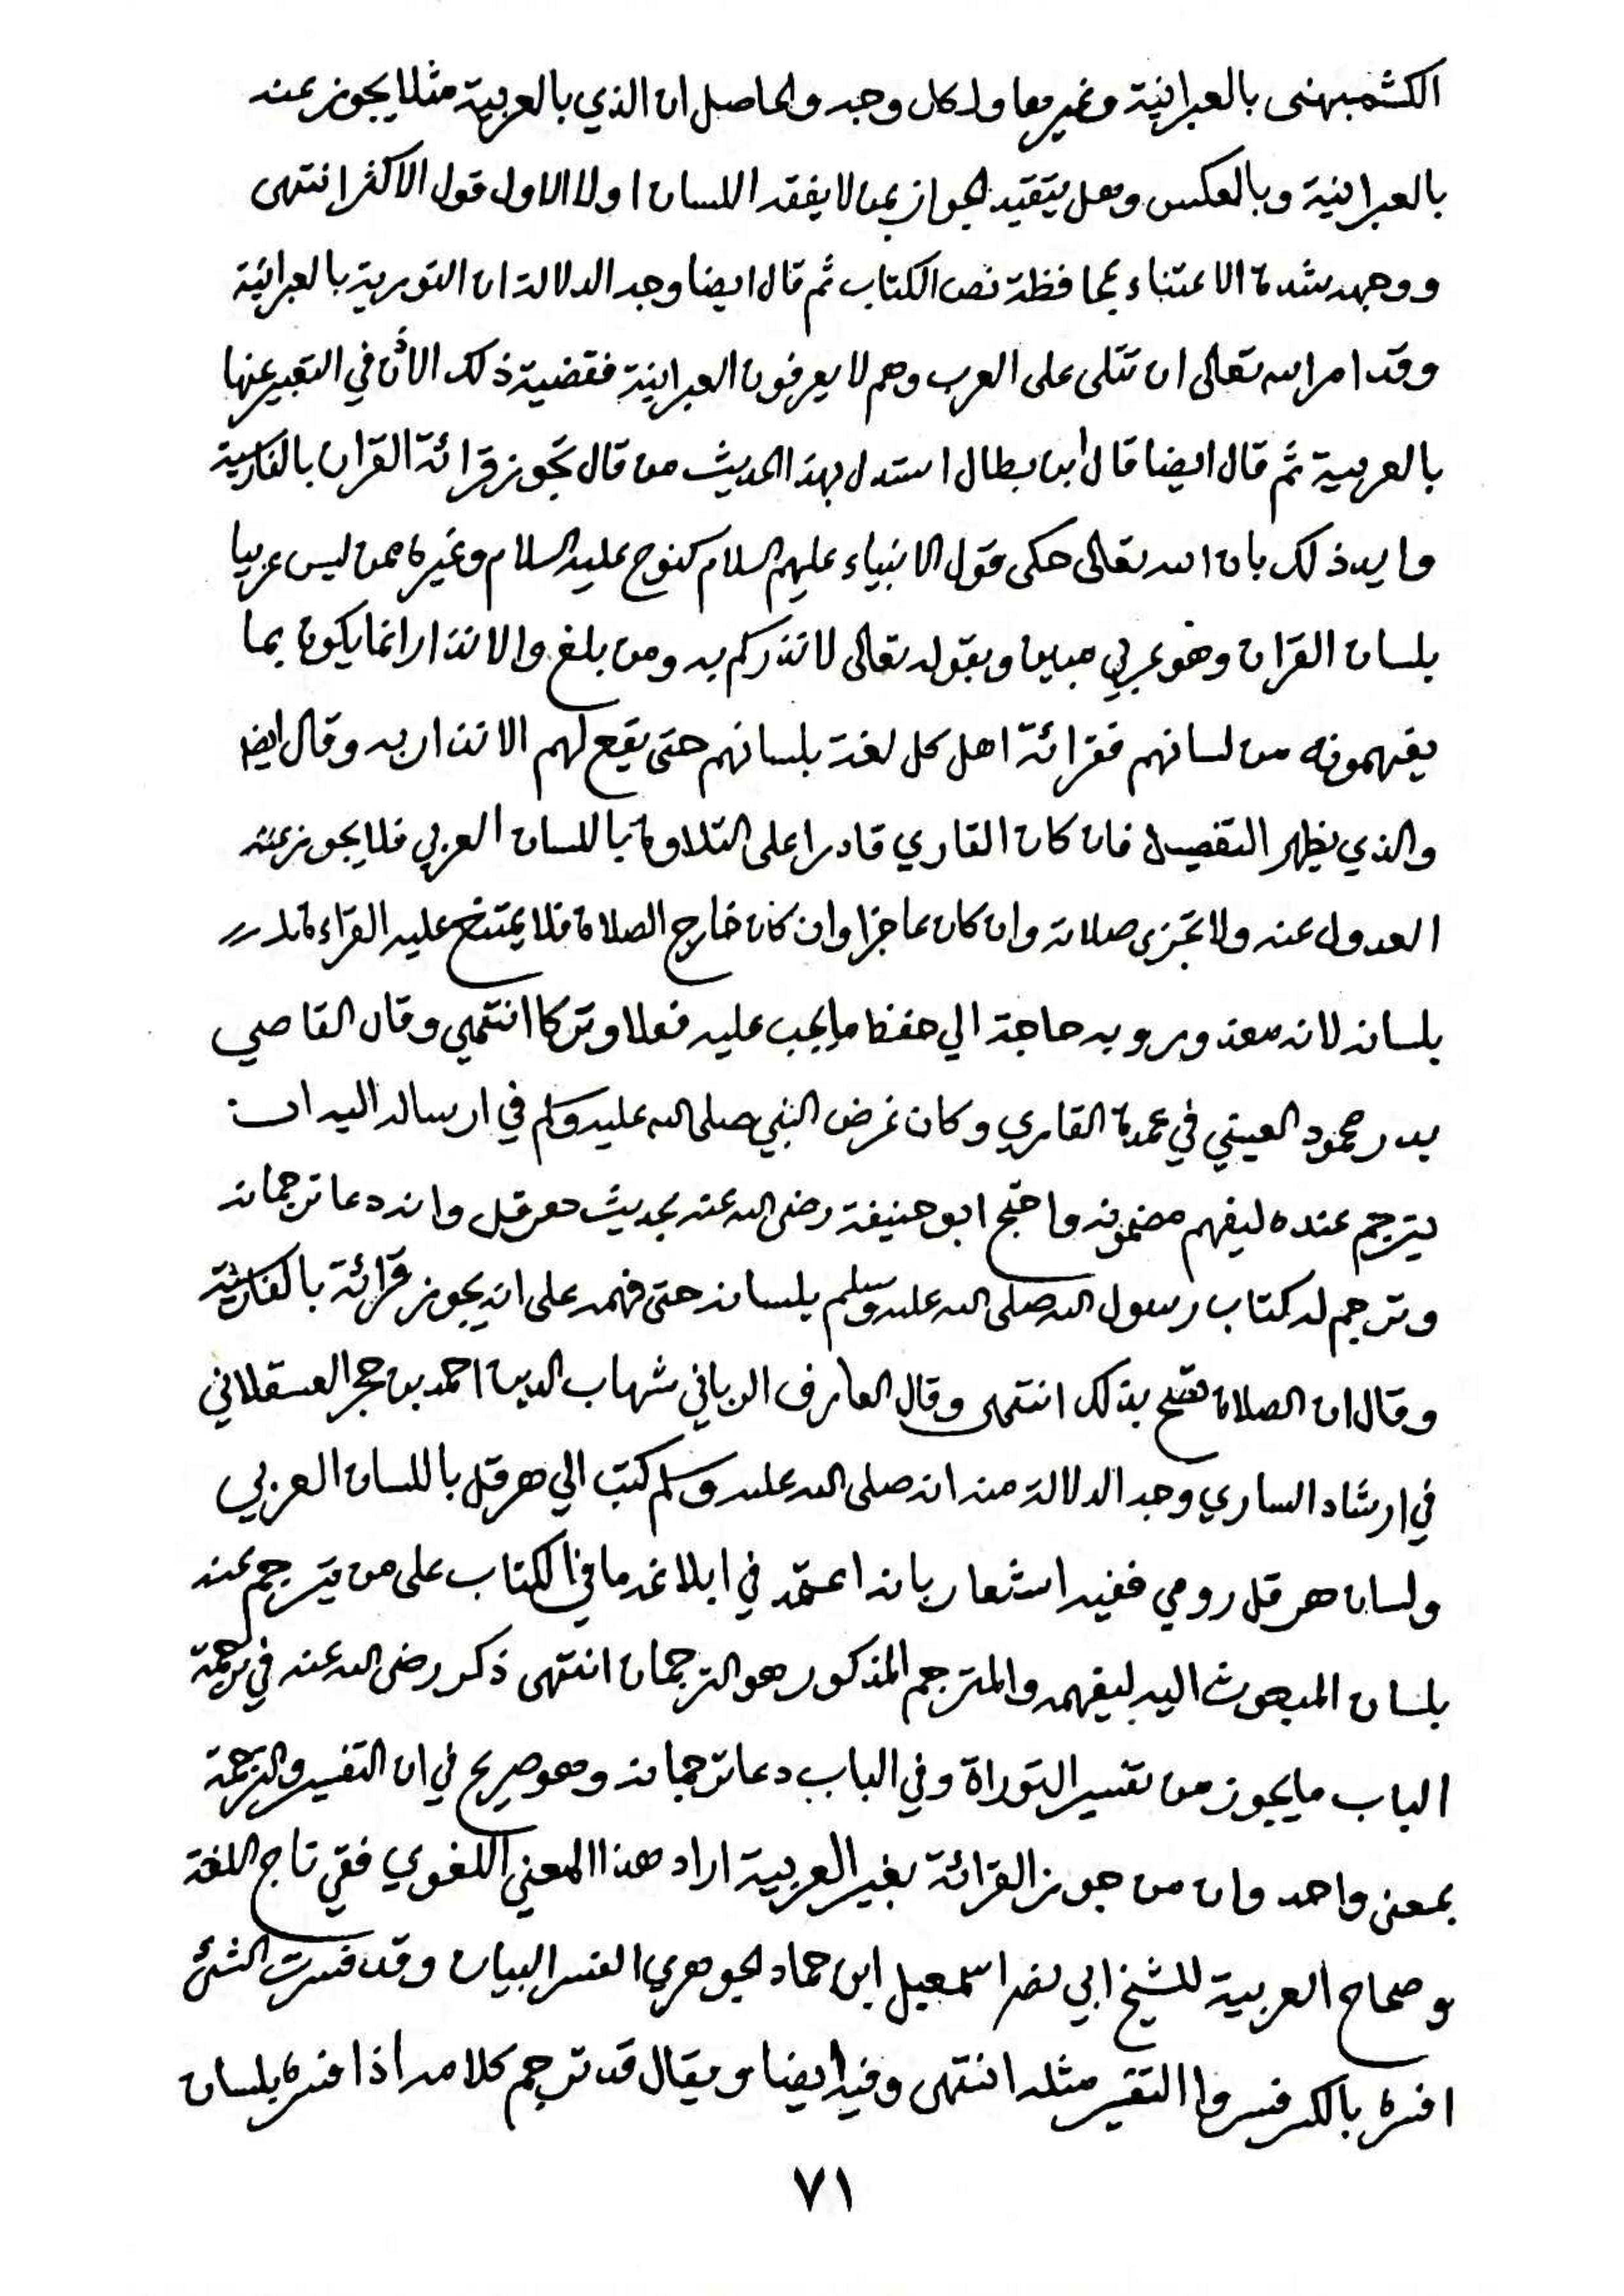 الكشمبهنى بالعبرانية وغيرها ولكل وجه والحاصل ان الذي بالعربية مثلا يجوز عند
بالعبرانية وبالعكس وهل يتقيد الجواز بمن لا يفقه اللسان اولا الاول قول الاكثر انتهى
ووجهه شدة الاعتناء بمحافظة نص الكتاب ثم قال ايضا وجه الدلالة ان التورية بالعبرانية
وقد امر الله تعالى ان تتلى على العرب وهم لا يعرفون العبرانية فقضية ذلك الاذن في التعبير عنها
بالعربية ثم قال ايضا قال ابن بطال استدل بهذا الحديث من قال تجوز قرائة القران بالفارسية
وايد ذلك بان الله تعالى حكى قول الانبياء عليهم السلام كنوح عليه السلام وغيره ممن ليس عربيا
بلسان القران وهو عربي مبين وبقوله تعالى لانذركم به ومن بلغ والانذار انما يكون بما
يفهمونه من لسانهم فقرائة اهل كل لغة بلسانهم حتى يقع لهم الانذار به وقال ايضا
والذي يظهر التفصيل فان كان القاري قادرا على التلاوة باللسان العربي فلا يجوز عنه
العدول عنه ولا تجزى صلاته وان كان عاجزا وان كان خارج الصلاة فلا يمتنع عليه القراءة
بلسانه لانه معذور وبه حاجة الي حفظ ما يجب عليه فعلا وتركا انتهي وقال القاصي
بدر محمود العيني في عمدة القاري وكان غرض النبي صلى الله عليه وسلم في ارساله اليه ان
يترجم عنده ليفهم مضمونه واحتج ابو حنيفة رضى الله عنه بحديث هرقل وانه دعا ترجمانه
وترجم له كتاب رسول الله صلى الله عليه وسلم بلسانه حتى فهمه على انه يجوز قرائة بالفارسية
وقال ان الصلاة تصح بذلك انتهى وقال العارف الرباني شهاب الدين احمد بن حجر العسقلاني
في ارشاد الساري وجه الدلالة منه انه صلى الله عليه وسلم كتب الي هرقل باللسان العربي
ولسان هرقل رومي ففيه اشعار بانه اعتمد في ابلاغه ما في الكتاب على من يترجم عنه
بلسان المبعوث اليه ليفهمه والمترجم المذكور هو الترجمان انتهى ذكر رضى الله عنه في ترجمة
الباب ما يجوز من تفسير التوراة وفي الباب دعا ترجمانه وهو صريح في ان التفسير والترجمة
بمعنى واحد وان من جوز القرائة بغير العربية اراد هذا المعني اللغوي ففي تاج اللغة
وصحاح العربية للشيخ ابي نصر اسمعيل ابن حماد الجوهري الفسر البيان وقد فسرت الشئ
افسره بالكسر فسروا التفسير مثله انتهى وفيه ايضا ويقال قد ترجم كلامه اذا فسره بلسان
٧١